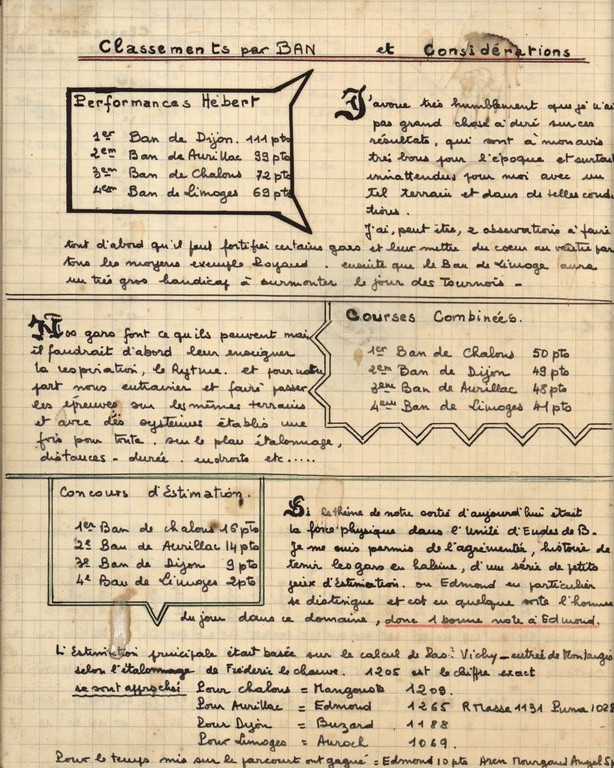 Classements par BAN et Considérations
Performances Hébert
1er Ban de Dijon. 111 pts
2em Ban de Aurillac 99 pts
3em Ban de Chalons 72 pts
4em Ban de Limoges 69 pts
J'avoue très humblement que je n'ai
pas grand chose à dire sur ces
résultats, qui sont à mon avis
très bons pour l'époque et surtout
inattendus pour moi avec un
tel terrain et dans de telles condi
tions.
J'ai, peut être, 2 observations à faire
tout d'abord qu'il faut fortifier certains gars et leur mettre du coeur au ventre par
tous les moyens exemple Royaud. ensuite que le Ban de Limoge aura
un très gros handicap à surmonter le jour des Tournois -
Nos gars font ce qu'ils peuvent mais
il faudrait d'abord leur enseigner
la respiration, le Rytme. et pour notre
part nous entrainer et faire passer
les épreuves sur les mêmes terrains
et avec des systèmes établis une
fois pour toute. sur le plan étalonnage,
distances - durée. endroits etc.....
Courses Combinées.
1er Ban de Chalons 50 pts
2em Ban de Dijon 49 pts
3em Ban de Aurillac 48 pts
4em Ban de Limoges 41 pts
Concours d'Estimation.
1er Ban de chalons 16 pts
2e Ban de Aurillac 14 pts
3e Ban de Dijon 9 pts
4e Ban de Limoges 2 pts
Si le thème de notre sortie d'aujourd'hui était
la force physique dans l'Unité d'Eudes de B.
Je me suis permis de l'agrémenter, histoire de
tenir les gars en haleine, d'une série de petits
jeux d'Estimation. ou Edmond en particulier
se distingue et est en quelque sorte l'homme
du jour dans ce domaine, donc 1 bonne note à Edmond.
L'Estimation principale était basée sur le calcul de Pas: Vichy - entrée de Montaigu
selon l'étalonnage de Fréderic le chauve. 1205 est le chiffre exact
se sont approchés Pour chalons = Mangouste 1209.
Pour Aurillac = Edmond 1265 R Masse 1131 Puma 1028
Pour Dijon = Buzard 1188
Pour Limoges = Auroch 1069.
Pour le temps mis sur le parcourt ont gagné = Edmond 10 pts Mourgaud Angel 5